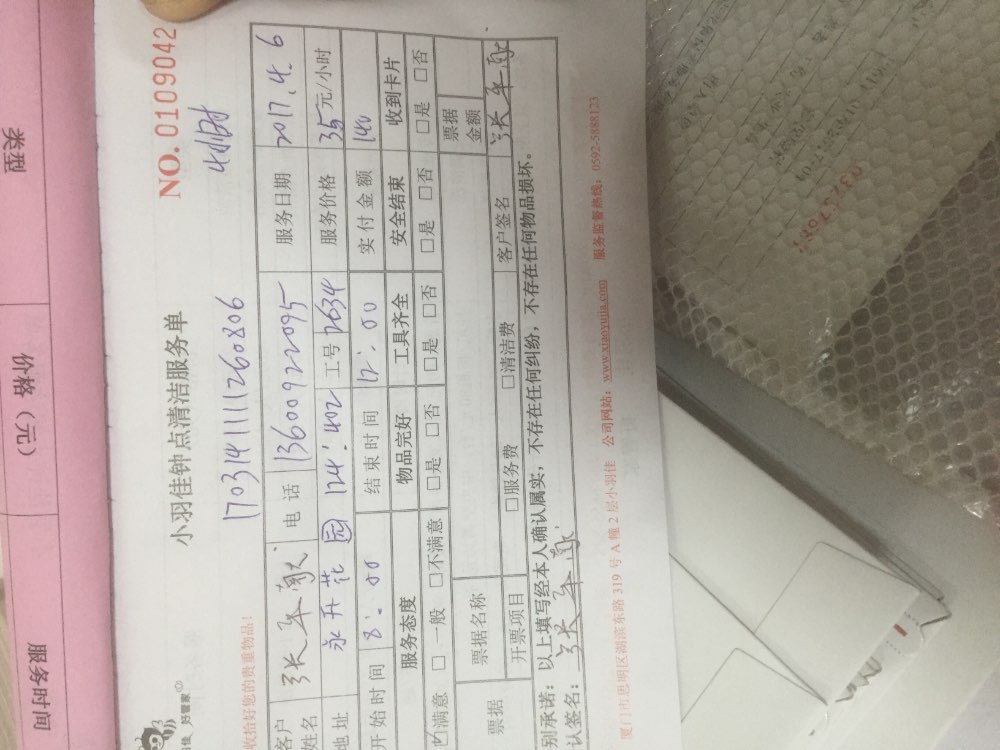 类型
价格（元）
服务时间
NO.0109042
小羽佳钟点清洁服务单
4小时
17031411111260806
好管家
收拾好您的贵重物品！
客户姓名 电话 13600922095 服务日期 2017.4.6
地址 永升花园 124#402 工号 2634 服务价格 35元/小时
开始时间 8:00 结束时间 12:00 实付金额 140
服务态度 物品完好 工具齐全 安全结束 收到卡片
☑满意 □一般 □不满意 □是 □否 □是 □否 □是 □否 □是 □否
票据 票据名称 票据金额
开票项目 □服务费 □清洁费 客户签名
别承诺：以上填写经本人确认属实，不存在任何纠纷，不存在任何物品损坏。
认签名：
厦门市思明区湖滨东路 319 号 A 幢 2 层小羽佳 公司网站：www.xiaoyujia.com 服务监督热线：0592-5888123